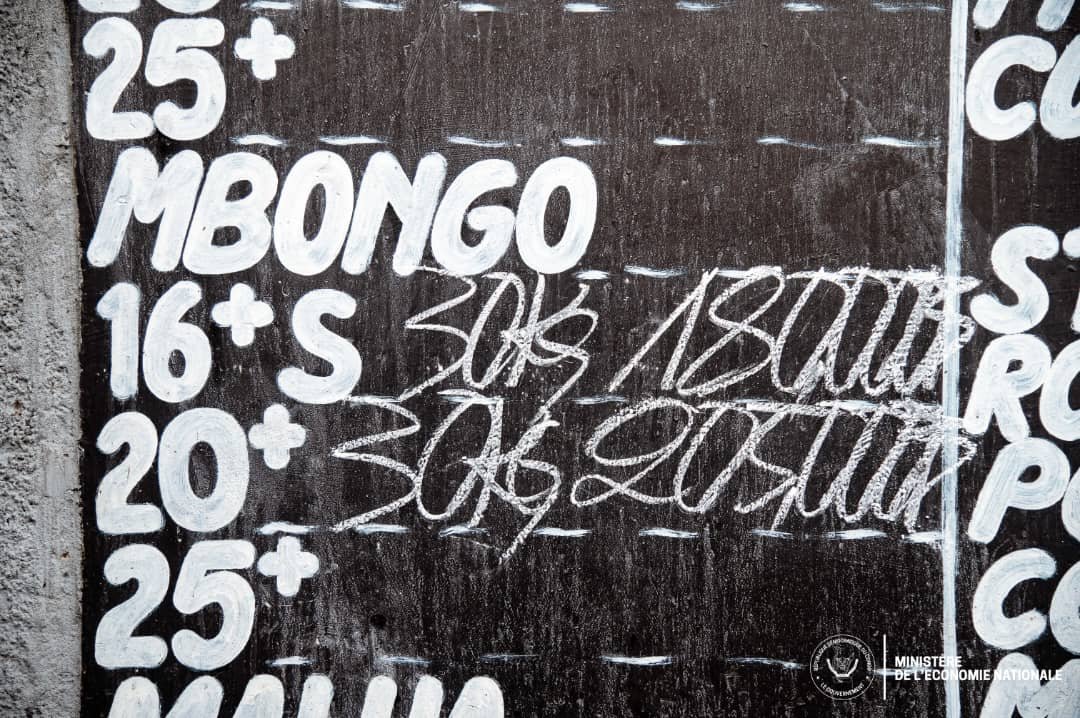 25+
MBONGO
16+ S 30KG 180000F
20+ 30KG 205000F
25+
MINISTÈRE
DE L'ECONOMIE NATIONALE